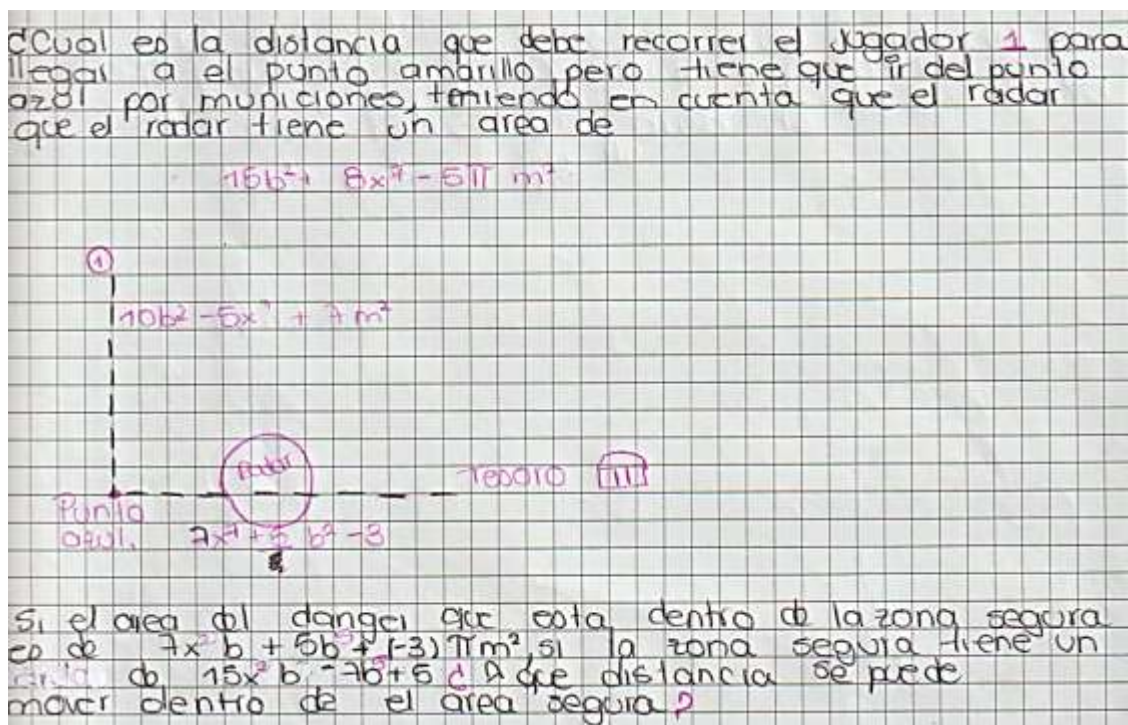 ¿Cual es la distancia que debe recorrer el Jugador 1 para
llegar a el punto amarillo pero tiene que ir del punto
azul por municiones, teniendo en cuenta que el radar
que el radar tiene un area de
8x² - 5π m²
①
10b² - 5x² + 7 m²
radar
tesoro
Punto
azul.
b² - 3
Si el area del danger que esta dentro de la zona segura
es de 7x² b + 5b + (-3) π m², si la zona segura tiene un
de 15x² b - 7b + 5 ¿A que distancia se puede
mover dentro de el area segura?